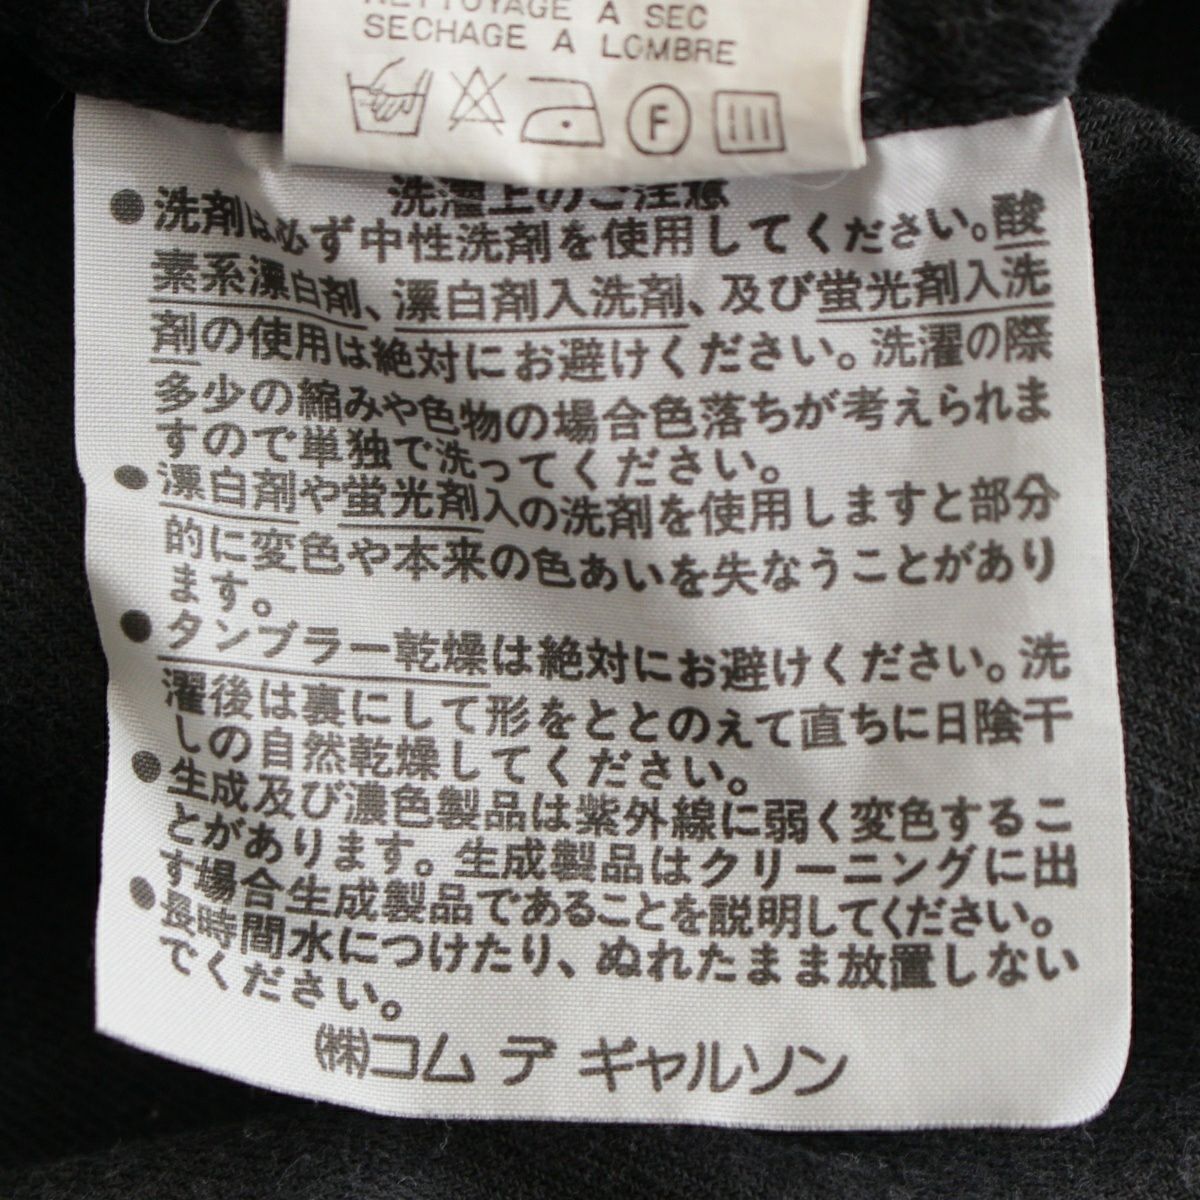 NETTOYAGE A SEC
SECHAGE A LOMBRE
F
洗濯上のご注意
●洗剤は必ず中性洗剤を使用してください。酸
素系漂白剤、漂白剤入洗剤、及び蛍光剤入洗
剤の使用は絶対にお避けください。洗濯の際
多少の縮みや色物の場合色落ちが考えられま
すので単独で洗ってください。
●漂白剤や蛍光剤入の洗剤を使用しますと部分
的に変色や本来の色あいを失なうことがあり
ます。
●タンブラー乾燥は絶対にお避けください。洗
濯後は裏にして形をととのえて直ちに日陰干
しの自然乾燥してください。
●生成及び濃色製品は紫外線に弱く変色するこ
とがあります。生成製品はクリーニングに出
す場合生成製品であることを説明してください。
●長時間水につけたり、ぬれたまま放置しない
でください。
㈱コム デ ギャルソン